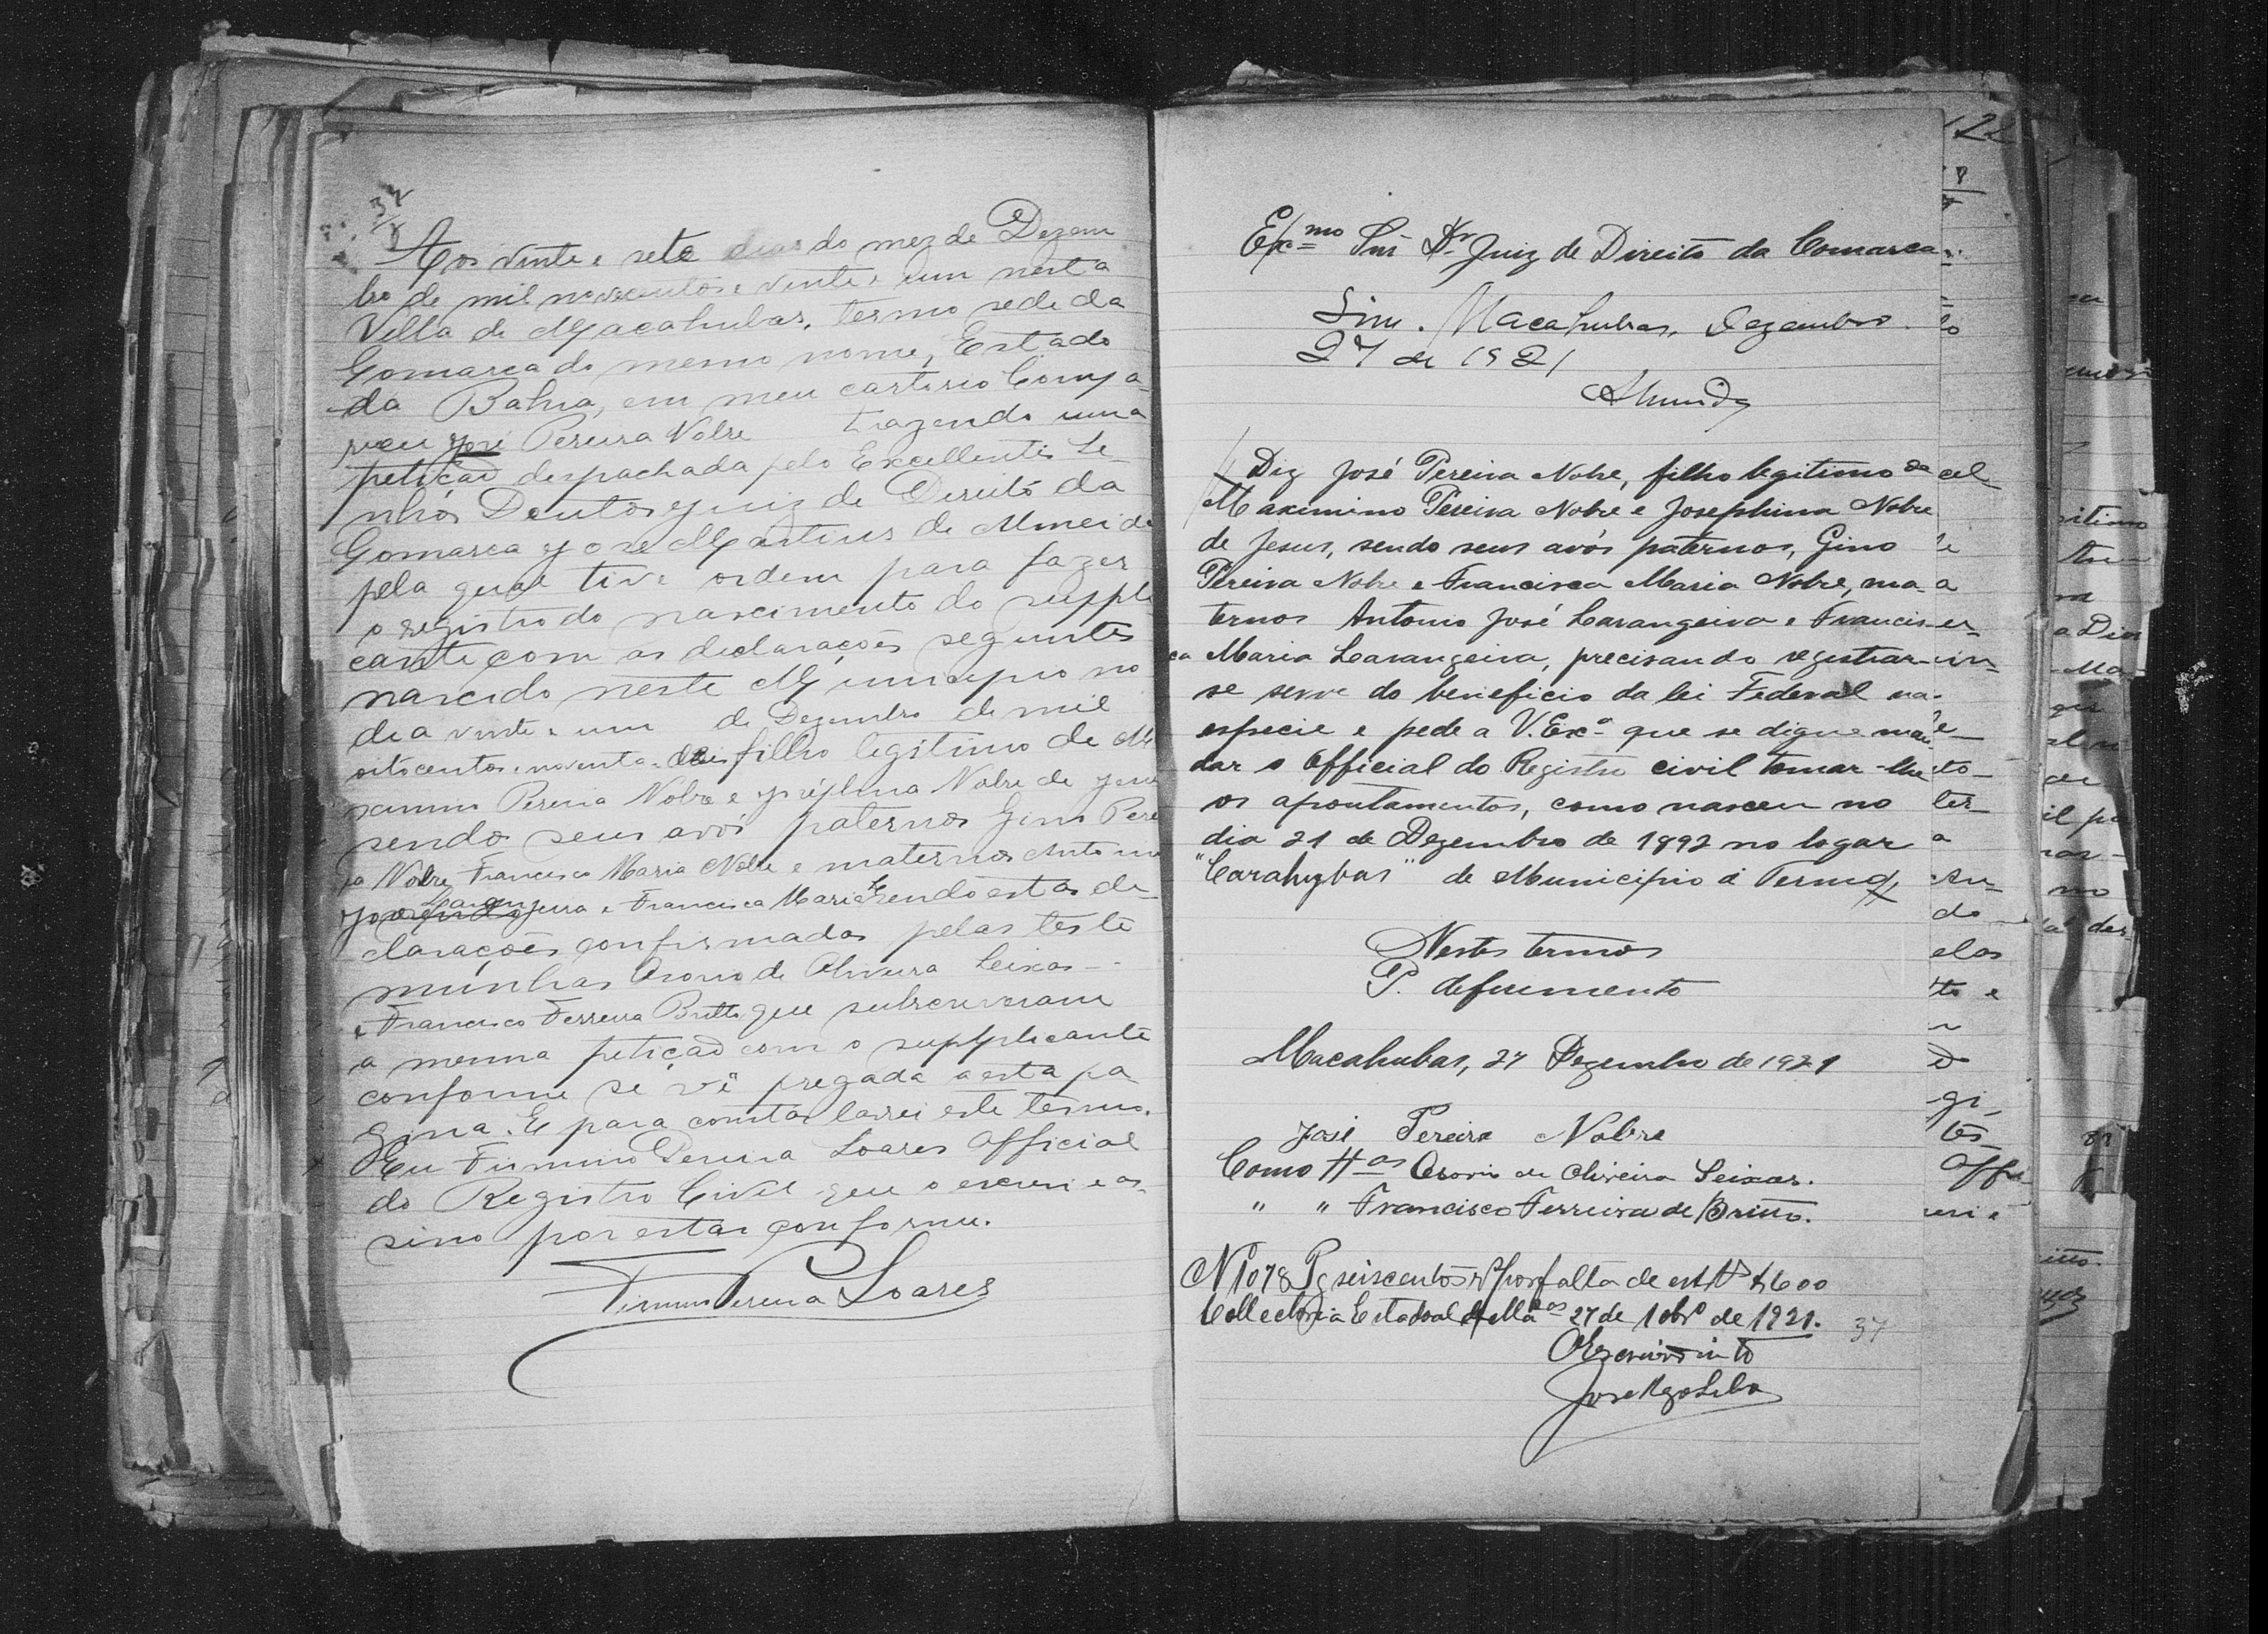 37
Aos vinte e sete dias do mez de Dezem
bro de mil novecentos e vinte e um nesta
Villa de Macahubas, termo sede da
Comarca do mesmo nome, Estado
da Bahia, em meu cartorio Compa-
receu José Pereira Nobre trazendo uma
petição despachada pelo Excellentis Se-
nhor Doutor Juiz de Direito da
Comarca José Martins de Almeida
pela qual tive ordem para fazer
o registro do nascimento do suppli
cante com as declarações seguintes
nascido neste Municipio no
dia vinte e um de Dezembro de mil
oitocentos e noventa e dois filho legitimo de Ma
ximino Pereira Nobre e Josephina Nobre de Jesus
sendo seus avós paternos Gino Perei
ra Nobre, Francisca Maria Nobre e maternos Antonio
José Larangeira e Francisca Maria L Sendo estas de-
clarações confirmadas pelas teste
munhas Osorio de Oliveira Seixas -
e Francisco Ferreira Britto que subscreveram
a mesma petição com o supplicante
conforme se vê pregada a esta pa
gina. E para constar lavrei este termo.
Eu Firmino Pereira Soares Official
do Registro Civil que o escrevi e as-
sino por estar conforme.
Firmino Pereira Soares
Exmo Snr Dr Juiz de Direito da Comarca
Sim. Macahubas, Dezembro
27 de 1921
Almeida
Diz José Pereira Nobre, filho legitimo de
Maximino Pereira Nobre e Josephina Nobre
de Jesus, sendo seus avós paternos, Gino
Pereira Nobre e Francisca Maria Nobre, ma-
ternos Antonio José Larangeira e Francis-
ca Maria Larangeira, precisando registrar-
se serve do beneficio da lei Federal na
especie e pede a V. Exca que se digne man
dar o Official do Registro civil tomar-lhe
os apontamentos, como nasceu no
dia 21 de Dezembro de 1892 no logar
"Carahybas" de Municipio e Termo,
Nestes termos
P. deferimento
Macahubas, 27 Dezembro de 1921
José Pereira Nobre
Como ttas Osorio de Oliveira Seixas.
" " Francisco Ferreira de Britto.
N 1078 Pg seiscentos rs por falta de estps $600
Collectoria Estadoal de Mcas 27 de 10bro de 1921.
37